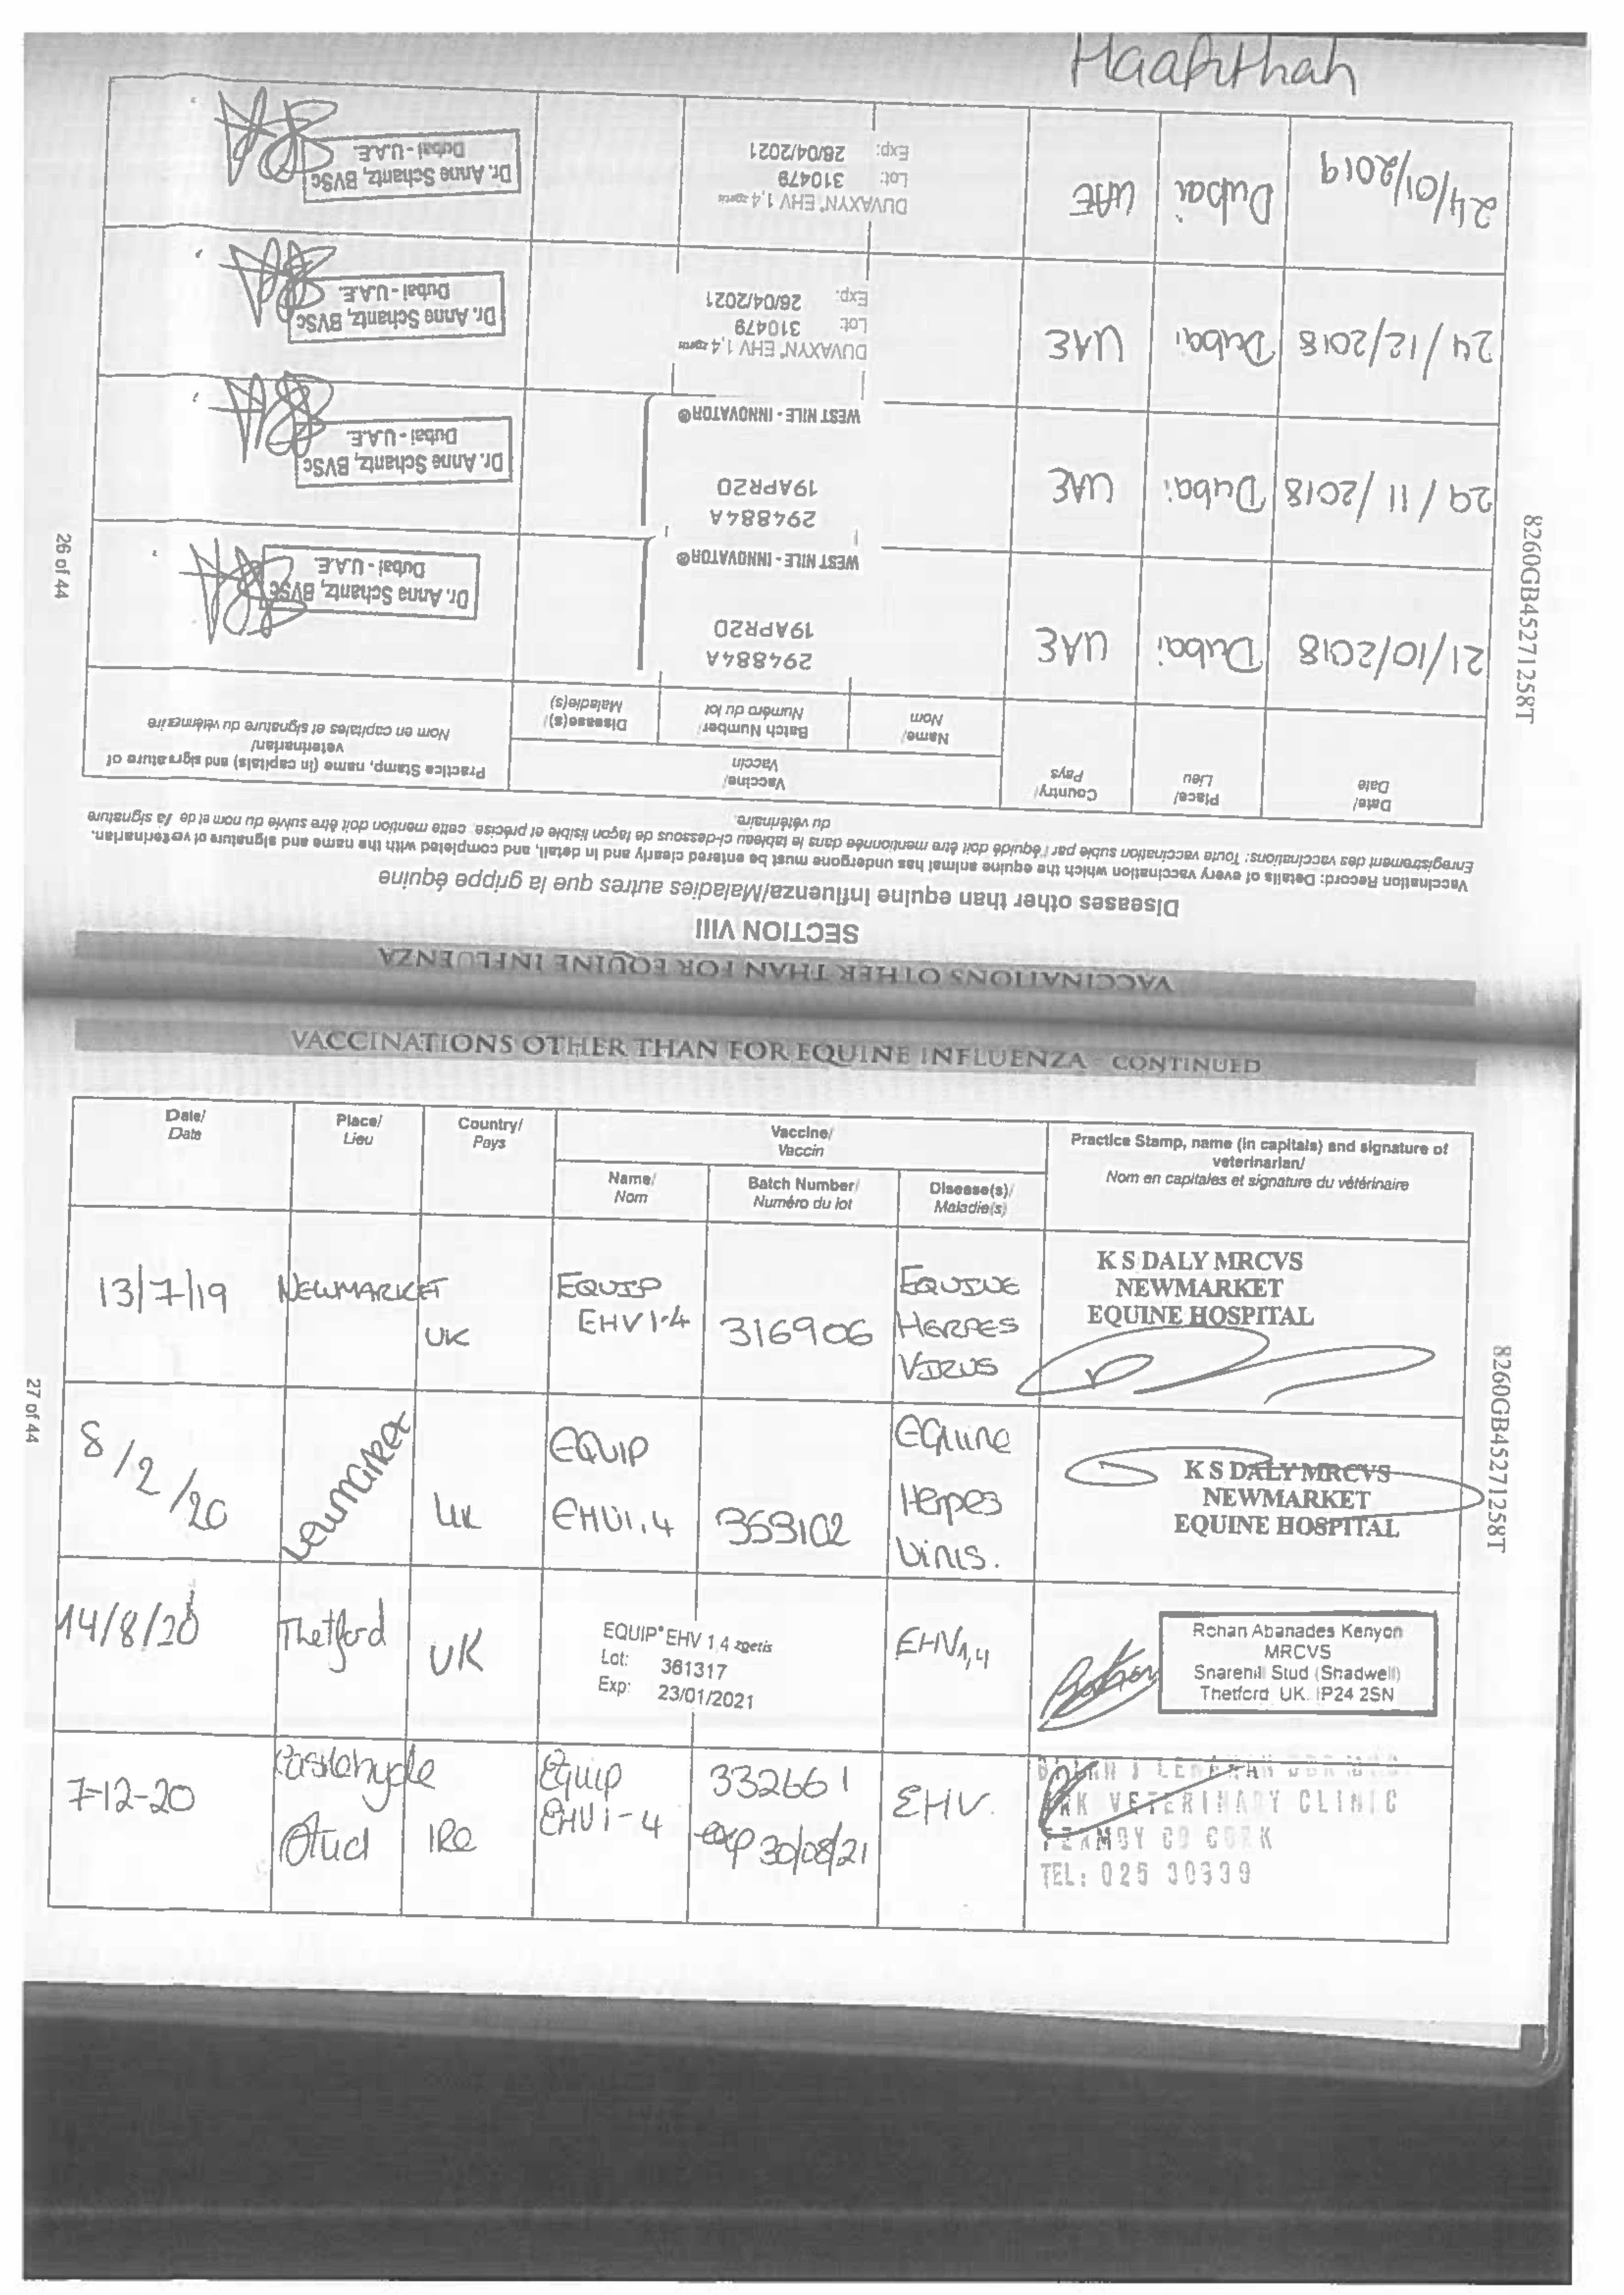 Haafhthah
VACCINATIONS OTHER THAN FOR EQUINE INFLUENZA
SECTION VIII
Diseases other than equine influenza/Maladies autres que la grippe équine
Vaccination Record: Details of every vaccination which the equine animal has undergone must be entered clearly and in detail, and completed with the name and signature of veterinarian.
Enregistrement des vaccinations: Toute vaccination subie par l'équidé doit être mentionnée dans le tableau ci-dessous de façon lisible et précise, cette mention doit être suivie du nom et de la signature
du vétérinaire.
Date/
Date
Place/
Lieu
Country/
Pays
Vaccine/
Vaccin
Name/
Nom
Batch Number/
Numéro du lot
Disease(s)/
Maladie(s)
Practice Stamp, name (in capitals) and signature of
veterinarian/
Nom en capitales et signature du vétérinaire
21/10/2018 Dubai UAE
294884A
19APR20
WEST NILE - INNOVATOR®
Dr. Anne Schantz, BVSc
Dubai - U.A.E.
29/11/2018 Dubai UAE
294884A
19APR20
WEST NILE - INNOVATOR®
Dr. Anne Schantz, BVSc
Dubai - U.A.E.
24/12/2018 Dubai UAE
DUVAXYN® EHV 1,4 zoetis
Lot: 310479
Exp: 28/04/2021
Dr. Anne Schantz, BVSc
Dubai - U.A.E.
24/01/2019 Dubai UAE
DUVAXYN® EHV 1,4 zoetis
Lot: 310479
Exp: 28/04/2021
Dr. Anne Schantz, BVSc
Dubai - U.A.E.
26 of 44
8260GB45271258T
VACCINATIONS OTHER THAN FOR EQUINE INFLUENZA - CONTINUED
Date/
Date
Place/
Lieu
Country/
Pays
Vaccine/
Vaccin
Name/
Nom
Batch Number/
Numéro du lot
Disease(s)/
Maladie(s)
Practice Stamp, name (in capitals) and signature of
veterinarian/
Nom en capitales et signature du vétérinaire
13/7/19 NEWMARKET
UK
EQUIP
EHV1-4
316906
EQUINE
HERPES
VIRUS
K S DALY MRCVS
NEWMARKET
EQUINE HOSPITAL
8/2/20
Newmarket
UK
EQUIP
EHV1,4
359102
Equine
Herpes
Virus.
K S DALY MRCVS
NEWMARKET
EQUINE HOSPITAL
14/8/20
Thetford
UK
EQUIP® EHV 1,4 zoetis
Lot: 361317
Exp: 23/01/2021
EHV1,4
Rohan Abanades Kenyon
MRCVS
Snarehill Stud (Shadwell)
Thetford UK. IP24 2SN
7-12-20
Castlehyde
Stud
IRe
Equip
EHV1-4
332661
exp 30/08/21
EHV.
VETERINARY CLINIC
FERMOY CO CORK
TEL: 025
27 of 44
8260GB45271258T